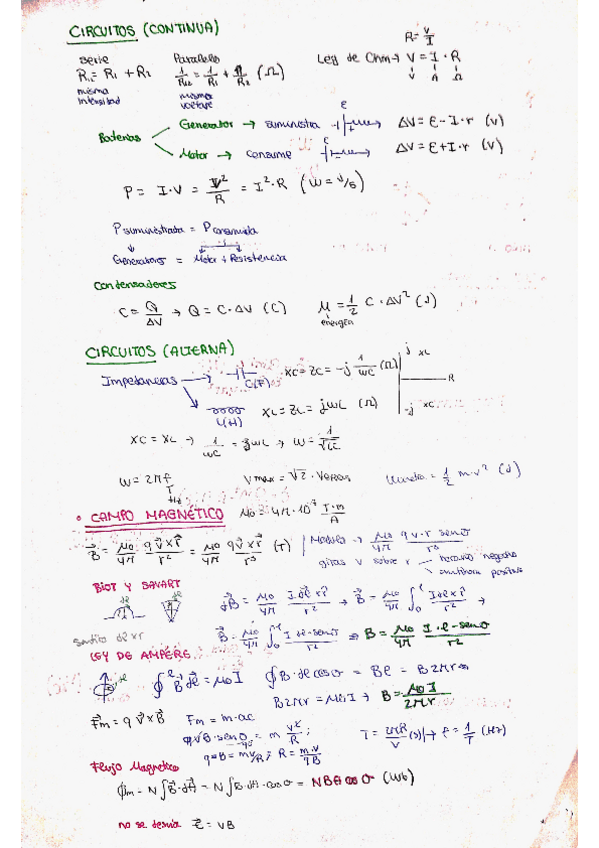 CIRCUITOS (CONTINUA)
R = V/I
Serie Paralelo Ley de Ohm → V = I · R
R₁₂ = R₁ + R₂ 1/R₁₂ = 1/R₁ + 1/R₂ (Ω) V A Ω
misma intensidad mismo voltaje
Baterias
Generator → suministra ε ΔV = ε - I · r (V)
Motor → consume ε ΔV = ε + I · r (V)
P = I · V = V²/R = I² · R (W = J/s)
P suministrada = P consumida
Generatores = Motor + Resistencia
Condensadores
C = Q/ΔV → Q = C · ΔV (C) μ = 1/2 C · ΔV² (J)
energía
CIRCUITOS (ALTERNA)
Impedancias → C(F) XC = ZC = -j 1/wC (Ω) j XL
R
L(H) XL = ZL = jwL (Ω) -j XC
XC = XL → 1/wC = jwL → w = 1/√LC
w = 2πf V max = √2 · Veficas = 1/2 m · v² (J)
Hz
• CAMPO MAGNÉTICO μ₀ = 4π · 10⁻⁷ T·m/A
B = μ₀/4π q v x r/r² = μ₀/4π q v x r/r³ (T) Modulo → μ₀/4π q v · r senσ/r³
giras v sobre r horario negativo
antihora positivo
BIOT Y SAVART
dB = μ₀/4π I dl x r/r² → B = μ₀/4π ∫ I dl x r/r² →
sentido dl x r B = μ₀/4π ∫ I dl · senσ/r² ⇒ B = μ₀/4π I · l · senσ/r²
LEY DE AMPÈRE
∮ B dl = μ₀ I ∮ B · dl cos σ = Bl = B2πr
B2πr = μ₀ I → B = μ₀ I/2πr
Fm = q v x B Fm = m · ac
q v B · sen σ = m v²/R ; T = 2πR/v (s) → f = 1/T (Hz)
q = B = mv/R ; R = m·v/qB
Flujo Magnetico
ϕm = N ∫ B · dA = N ∫ B · dA · cos σ = NBA cos σ (Wb)
no se desvia ε = vB